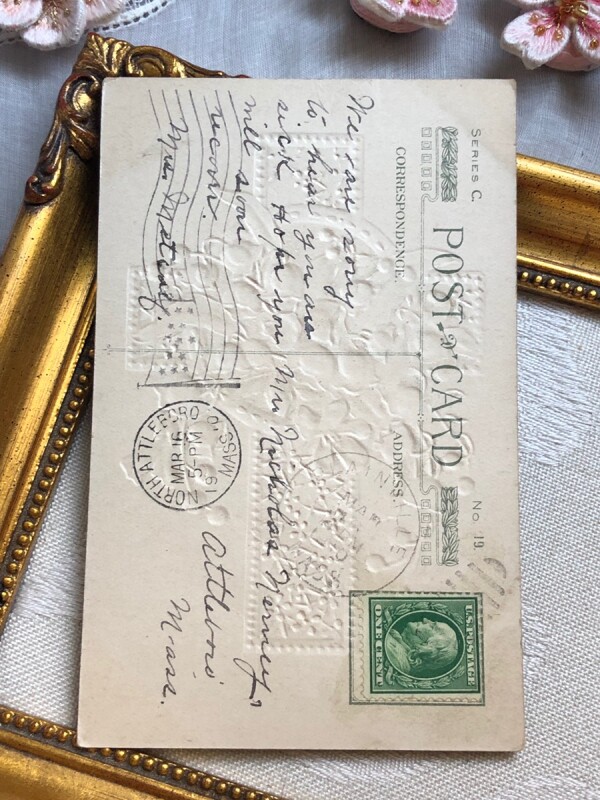 SERIES C.
No 19.
POST CARD
CORRESPONDENCE.
ADDRESS.
We are sorry
to hear you are
sick Hope you
will soon
recover.
Mrs
Mr Nicholas Nerney,
Attleboro
Mass.
U.S. POSTAGE
ONE CENT
NORTH ATTLEBORO, MASS.
MAR 16
5-PM
19
MAR